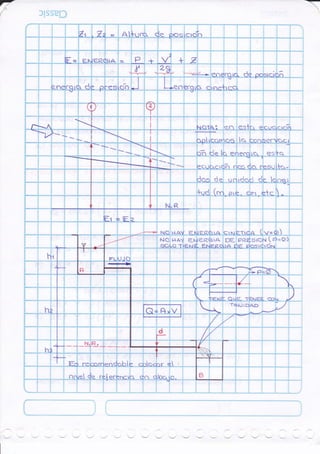 Classic
Z1, Z2 = Altura de posición
E = ENERGIA = P/γ + V²/2g + Z
energía de posición
energía de presión
energía cinética
1
2
NOTA: en esta ecuación
aplicamos la conservaci
ón de la energía, esta
ecuación nos da resulta-
dos de unidad de longi-
tud (m, pie, cm, etc).
N.R
E1 = E2
NO HAY ENERGIA CINETICA (V=0)
NO HAY ENERGIA DE PRESION (P=0)
SOLO TIENE ENERGIA DE POSICIÓN
h1
FLUJO
A
P=0
TIENE QUE TENER CON
TINUIDAD
h2
Q = A×V
d
N.R.
h3
Es recomendable colocar el
nivel de referencia en abajo.
B